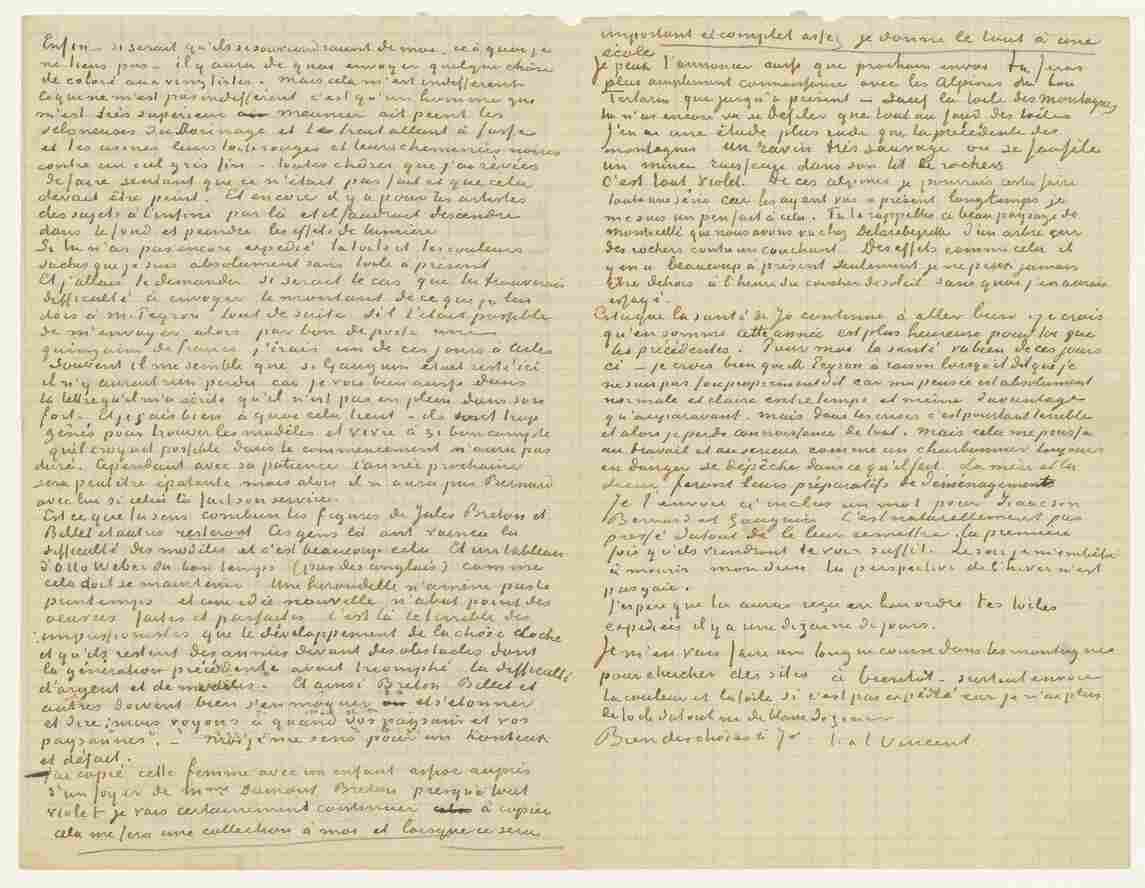 Enfin – si serait qu'ils se souviendraient de moi, ce à quoi je
ne tiens pas – il y aura de quoi envoyer quelque chose
de coloré aux vingtistes. Mais cela m'est indifférent.
Ce qui ne m'est pas indifférent c'est qu'un homme qui
m'est très supérieur meunier ait peint les
sclôneuses du Borinage et le trait allant à fosse
et les usines leurs toits rouges et leurs cheminées noires
contre un ciel gris fin – toutes choses que j'ai rêvées
de faire sentant que ce n'était pas fait et que cela
devait être peint. Et encore il y a pour les artistes
des sujets à l'infini par là et il faudrait descendre
dans le fond et peindre les effets de lumière
Si tu n'as pas encore expedié la toile et les couleurs
saches que je suis absolument sans toile à présent
Et j'allais te demander si serait le cas que tu trouverais
difficulté à envoyer le montant de ce que je lui
dois à M. Peyron tout de suite s'il t'était possible
de m'envoyer alors par bon de poste une
quinzaine de francs, j'irais un de ces jours à Arles
Souvent il me semble que si Gauguin était resté ici
il n'y aurait rien perdu car je vois bien aussi dans
la lettre qu'il m'a écrite qu'il n'est pas en plein dans son
fort. Et je sais bien à quoi cela tient – ils sont trop
gênés pour trouver les modèles et vivre à si bon compte
qu'il croyait possible dans le commencement n'aura pas
duré. Cependant avec sa patience l'année prochaine
sera peut être épatante mais alors il n'aura pas Bernard
avec lui si celui là fait son service.
Est ce que tu sens combien les figures de Jules Breton et
Billet et autres resteront Ces gens là ont vaincu la
difficulté des modèles et c'est beaucoup cela. Et un tableau
d'Otto Weber du bon temps (pas des anglais) comme
cela doit se maintenir Une hirondelle n'amène pas le
printemps et une idée nouvelle n'abat point des
oeuvres faites et parfaites C'est là le terrible des
impressionistes que le développement de la chose cloche
et qu'ils restent des années devant des obstacles dont
la génération précédente avait triomphé la difficulté
d'argent et de modèles. Et ainsi Breton Billet et
autres doivent bien s'en moquer et s'étonner
et dire: "mais voyons à quand vos paysans et vos
paysannes". – Moi je me sens pour un honteux
et défait.
J'ai copié cette femme avec un enfant assise auprès
d'un foyer de mme Dumont Breton presque tout
violet je vais certainement continuer à copier
cela me fera une collection à moi et lorsque ce sera
important et complet assez je donne le tout à une
école
Je peux t'annoncer aussi que prochain envoi tu feras
plus amplement connaissance avec les Alpines du bon
Tartarin que jusqu'à présent – sauf la toile des montagnes
tu n'as encore vu se défiler que tout au fond des toiles
J'en ai une étude plus rude que la précédente des
montagnes Un ravin très sauvage où se faufile
un mince ruisseau dans son lit de rochers
C'est tout violet. De ces alpines je pourrais certes faire
toute une série car les ayant vus à présent longtemps je
me suis un peu fait à cela. Tu te rappelles ce beau paysage de
monticelli que nous avons vu chez Delarebeyrette d'un arbre sur
des rochers contre un couchant. Des effets comme cela il
y en a beaucoup à présent seulement je ne peux jamais
être dehors à l'heure du coucher de soleil sans quoi j'en aurais
essayé.
Est ce que la santé de Jo continue à aller bien. – je crois
qu'en somme cette année est plus heureuse pour toi que
les précédentes. Pour moi la santé va bien de ces jours
ci – je crois bien que M. Peyron a raison lorsqu'il dit que je
ne suis pas fou proprement dit car ma pensée est absolument
normale et claire entretemps et même davantage
qu'auparavant. mais dans les crises c'est pourtant terrible
et alors je perds connaissance de tout. Mais cela me pousse
au travail et au serieux comme un charbonnier toujours
en danger se dépêche dans ce qu'il fait. La mère et la
soeur feront leurs préparatifs de déménagement
Je t'envoie ci inclus un mot pour Isaacson
Bernard et Gauguin C'est naturellement pas
pressé du tout de le leur remettre, la première
fois qu'ils viendront te voir suffit. Le soir je m'embête
à mourir mon dieu la perspective de l'hiver n'est
pas gaie.
J'espère que tu auras reçu en bon ordre les toiles
expediées il y a une dizaine de jours.
Je m'en vais faire une longue course dans les montagnes
pour chercher des sites à bientôt – surtout envoie
la couleur et la toile si c'est pas expédié car je n'ai plus
de toile du tout ni de blanc de zinc
Bien des choses à Jo – t. à t. Vincent.